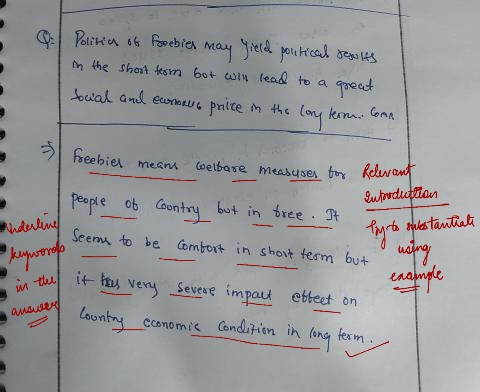 Q:- Politics of Freebies may Yield political results
in the short term but will lead to a great
Social and economic price in the long term. Comm
⇒ Freebies means welbare measures for
people of Country but in free. It
Seems to be Comfort in short term but
it has very severe impact effect on
Country economic Condition in long term.
Relevant
Introduction
Try to substantiate
using
example
Underline
keywords
in the
answer